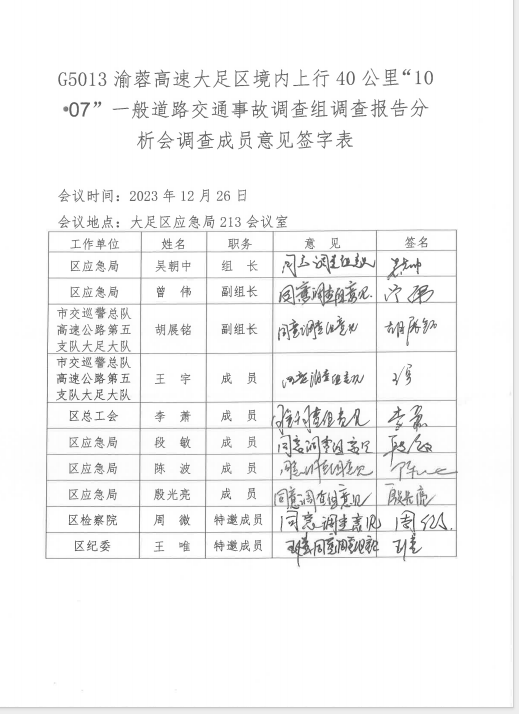 G5013渝蓉高速大足区境内上行40公里“10
•07”一般道路交通事故调查组调查报告分
析会调查成员意见签字表
会议时间：2023年12月26日
会议地点：大足区应急局213会议室
工作单位 姓名 职务 意 见 签名
区应急局 吴朝中 组 长 同意调查组意见
区应急局 曾 伟 副组长 同意调查组意见
市交巡警总队
高速公路第五
支队大足大队
胡展铭 副组长 同意调查组意见 胡展铭
市交巡警总队
高速公路第五
支队大足大队
王 宇 成 员 同意调查组意见 王宇
区总工会 李 萧 成 员 同意调查组意见 李萧
区应急局 段 敏 成 员 同意调查组意见 段敏
区应急局 陈 波 成 员 同意调查组意见
区应急局 殷光亮 成 员 同意调查组意见 殷光亮
区检察院 周 微 特邀成员 同意调查意见 周微
区纪委 王 唯 特邀成员